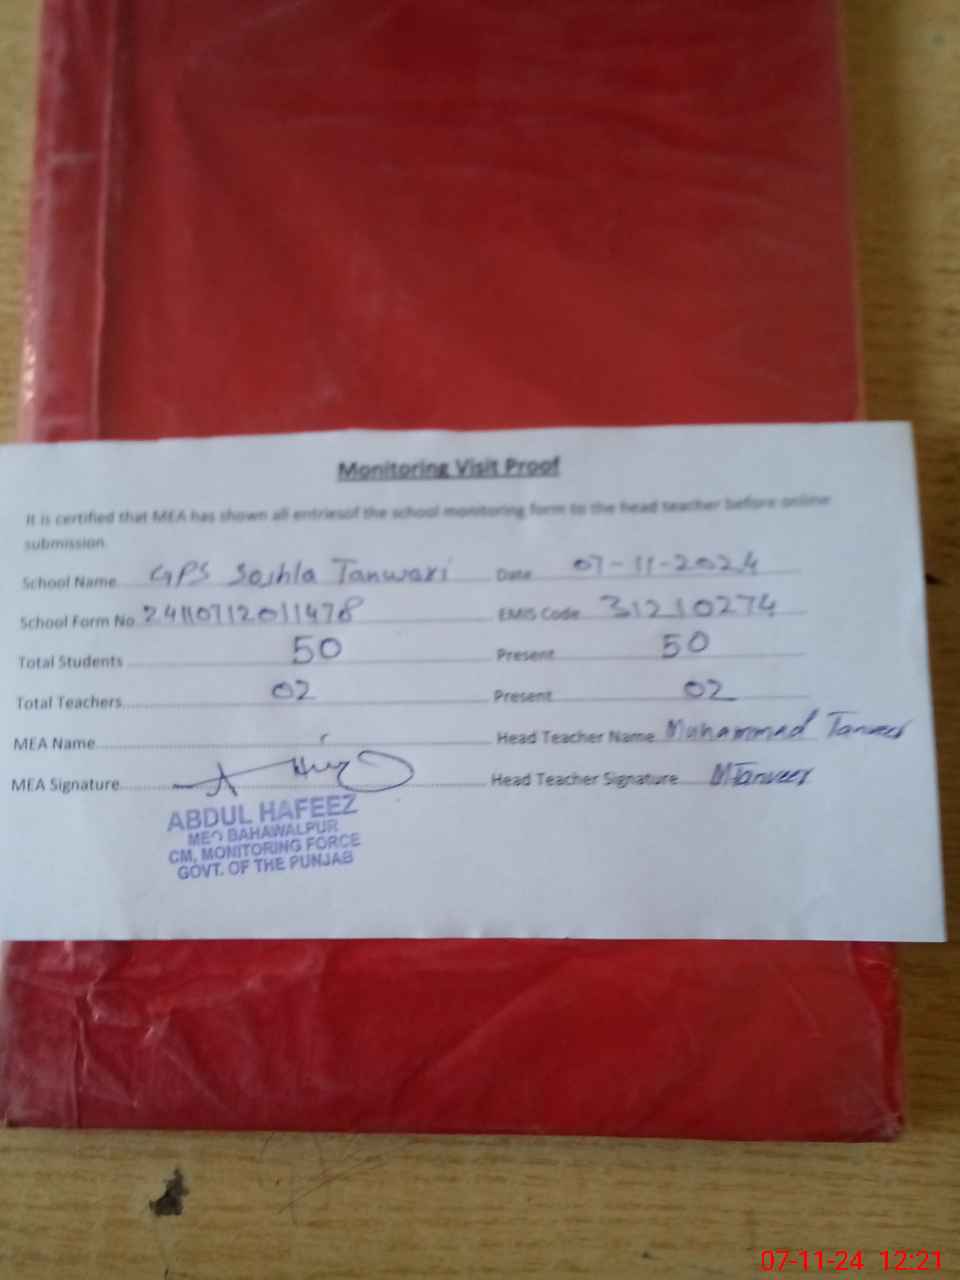 Monitoring Visit Proof
It is certified that MEA has shown all entriesof the school monitoring form to the head teacher before online
submission.
School Name GPS Soshla Tanwari Date 07-11-2024
School Form No 24110712011478 EMIS Code 31210274
Total Students 50 Present 50
Total Teachers 02 Present 02
MEA Name Head Teacher Name Muhammad Tanveer
MEA Signature Head Teacher Signature MTanveer
ABDUL HAFEEZ
MEO BAHAWALPUR
CM, MONITORING FORCE
GOVT. OF THE PUNJAB
07-11-24 12:21